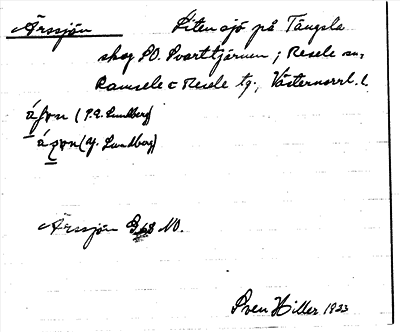 Ärssjön Liten sjö på Tängsla
skog SO. Svarttjärnen; Resele sn,
Ramsele o Resele tg., Västernorrl. l.
(P.A. Lundberg)
(Aj. Lundberg)
Ärssjön G68 NO.
Sven Hiller 1933